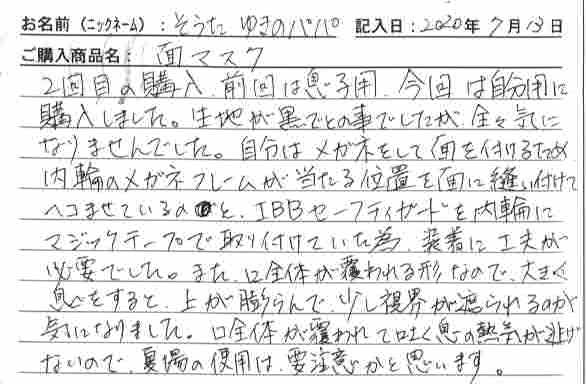 お名前（ニックネーム）：そうた ゆきのパパ 記入日：2020年7月13日
ご購入商品名：面マスク
2回目の購入、前回は息子用、今回は自分用に
購入しました。生地が黒でとの事でしたが、全々気に
なりませんでした。自分はメガネをして面を付けるため
内輪のメガネフレームが当たる位置を面に縫い付けて
ヘコませているのと、IBBセーフティガードを内輪に
マジックテープで取り付けていた為、装着に工夫が
必要でした。また、口全体が覆われる形なので、大きく
息をすると、上が膨らんで、少し視界が遮られるのが
気になりました。口全体が覆われて吐く息の熱気が逃げ
ないので、夏場の使用は、要注意かと思います。